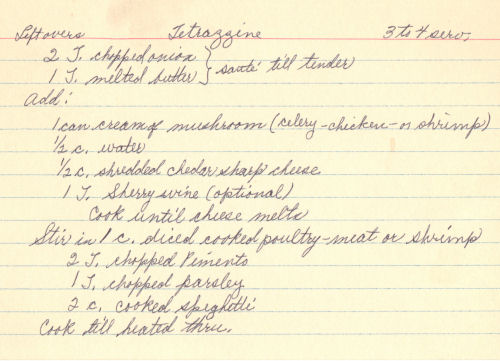 Leftovers Tetrazzine 3 to 4 serv.
2 T. chopped onion } sauté till tender
1 T. melted butter
Add:
1 can cream of mushroom (celery-chicken-or shrimp)
1/2 c. water
1/2 c. shredded chedar sharp cheese
1 T. Sherry wine (optional)
Cook until cheese melts
Stir in 1 c. diced cooked poultry-meat or shrimp
2 T. chopped Pimento
1 T. chopped parsley
2 c. cooked speghetti
Cook till heated thru.